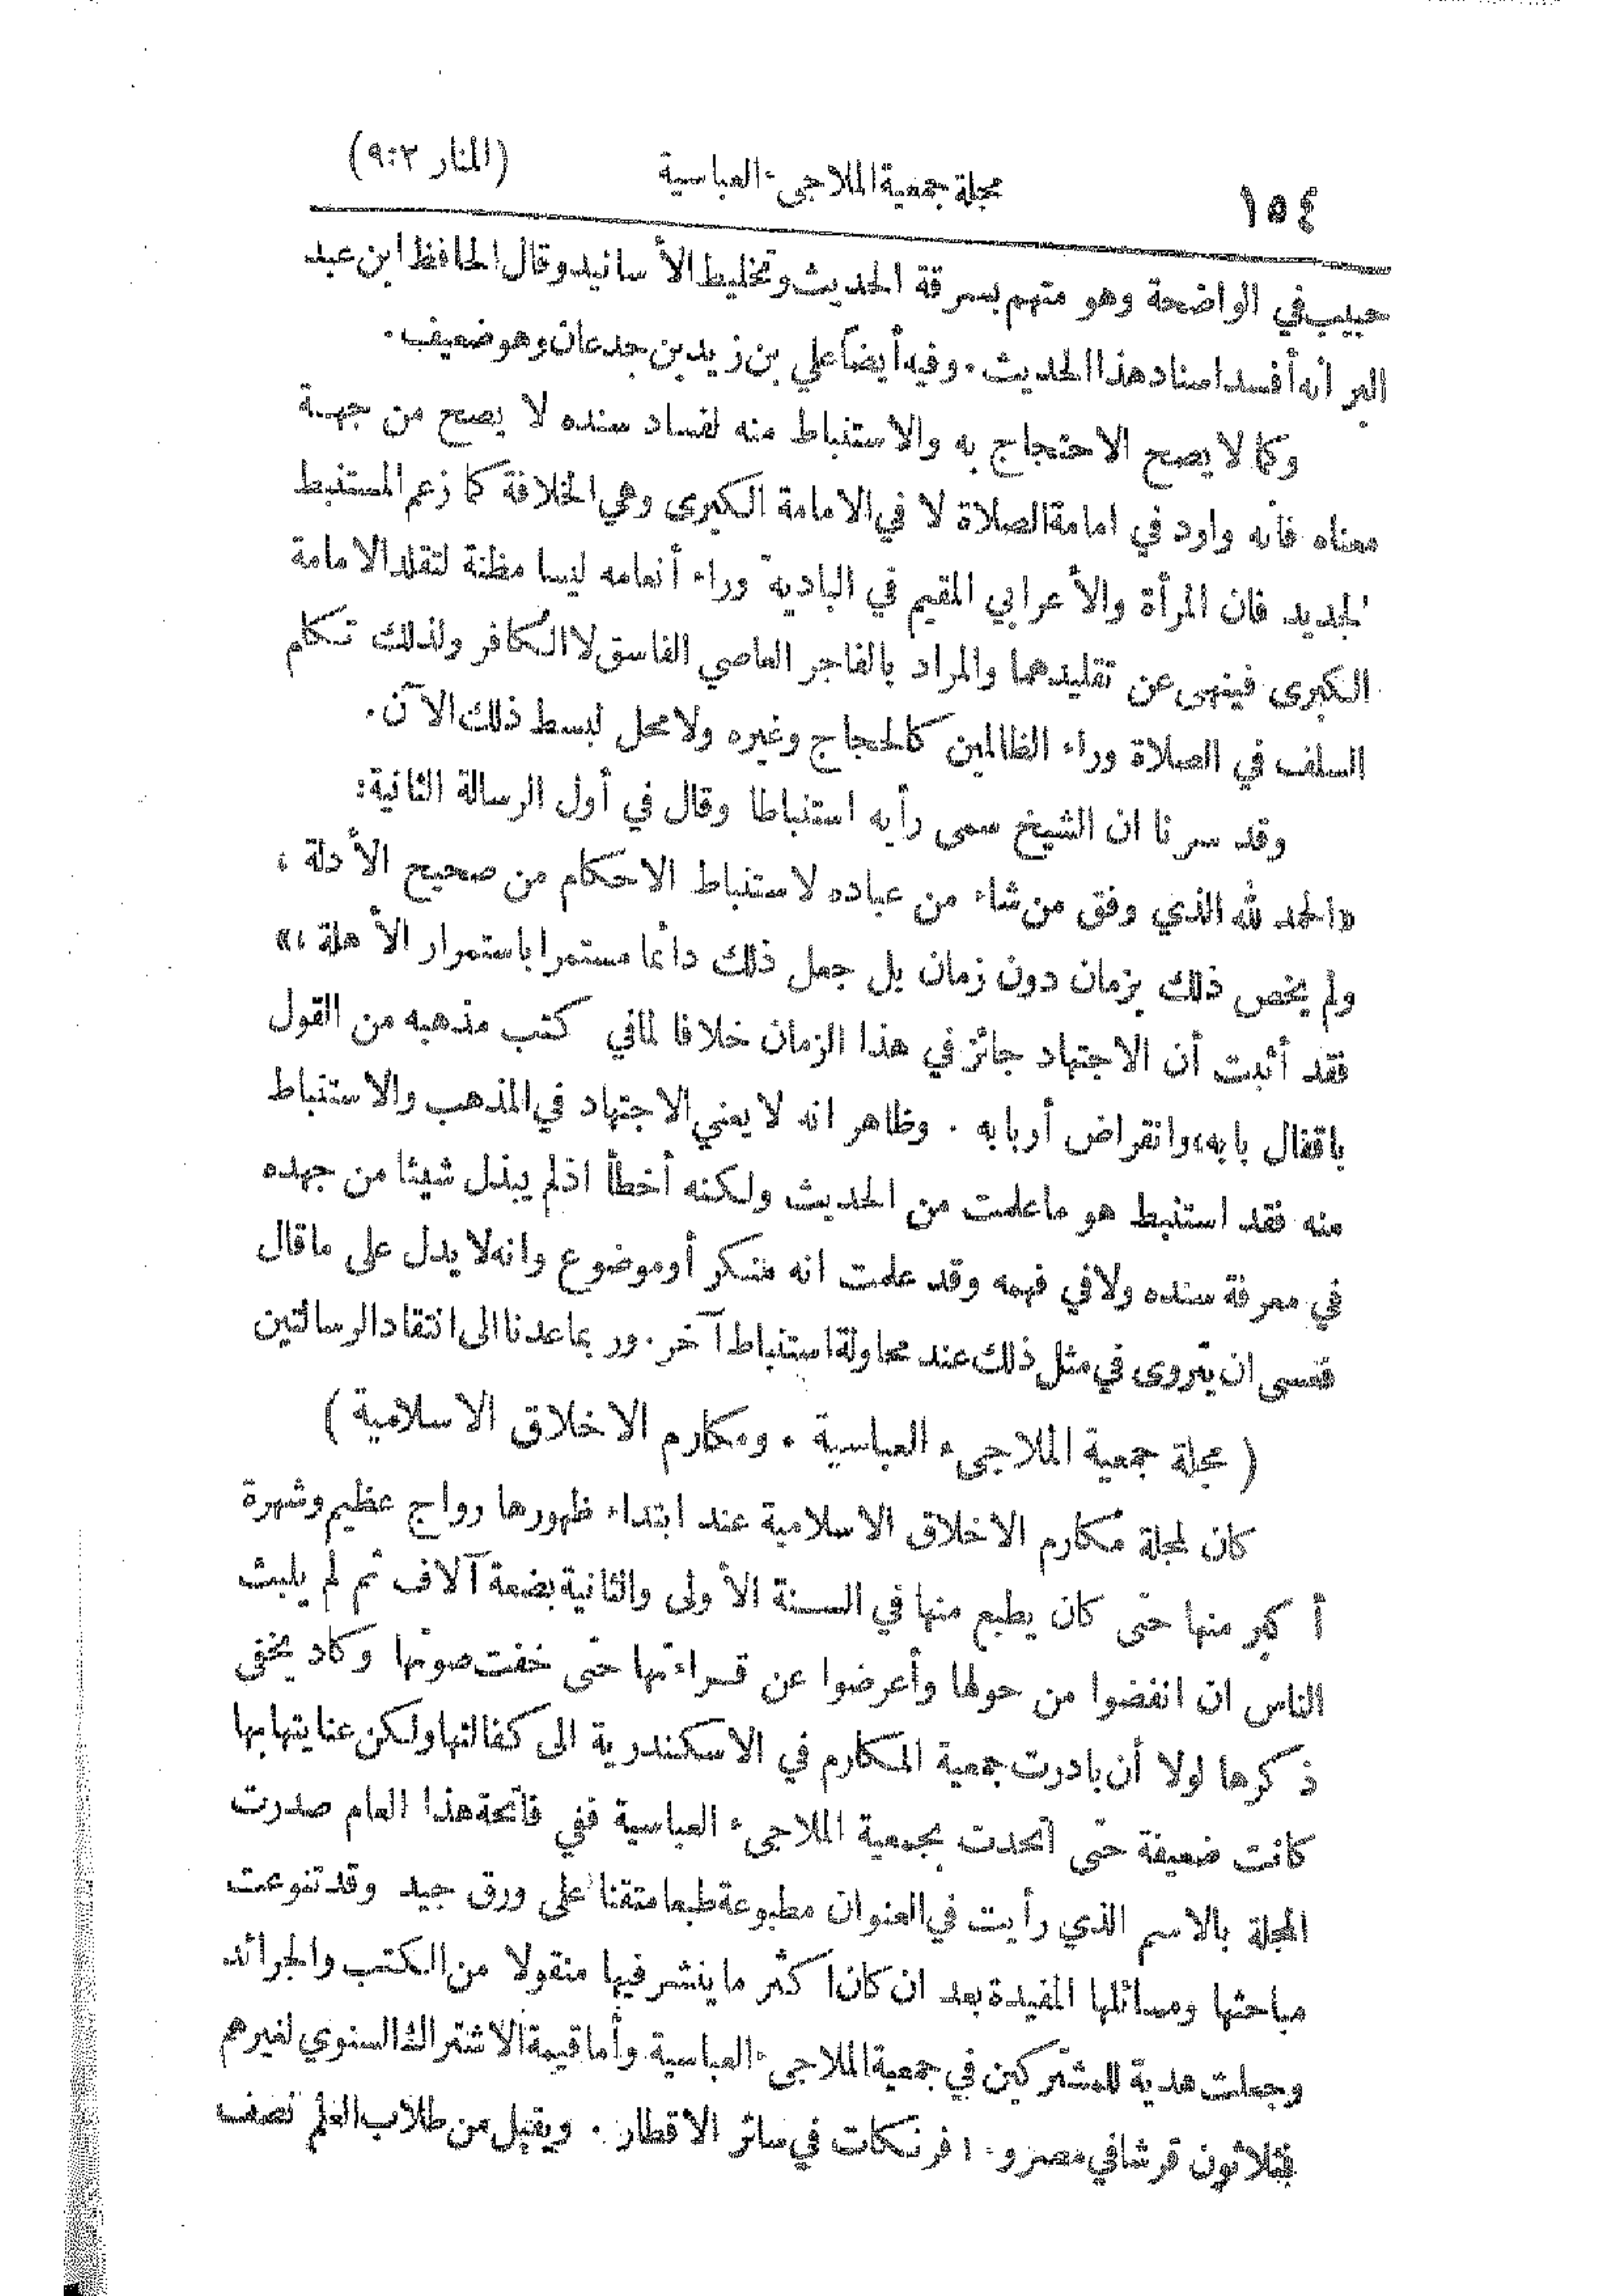 ١٥٤ مجلة جمعية الملاجىء العباسية (المنار ٩:٢)
حبيب في الواضحة وهو متهم بسرقة الحديث وتخليط الأسانيد وقال الحافظ ابن عبد
البر انه أفسد اسناد هذا الحديث . وفيه أيضاً علي بن زيد بن جدعان وهو ضعيف .
وكما لا يصح الاحتجاج به والاستنباط منه لفساد سنده لا يصح من جهة
معناه فانه وارد في امامة الصلاة لا في الامامة الكبرى وهي الخلافة كما زعم المستنبط
الجديد فان المرأة والأعرابي المقيم في البادية وراء أنعامه ليسا مظنة لتقلد الامامة
الكبرى فينهى عن تقليدهما والمراد بالفاجر العاصي الفاسق لا الكافر ولذلك تكلم
السلف في الصلاة وراء الظالمين كالحجاج وغيره ولا محل لبسط ذلك الآن .
وقد سرنا ان الشيخ سمى رأيه استنباطا وقال في أول الرسالة الثانية :
«الحمد لله الذي وفق من شاء من عباده لاستنباط الاحكام من صحيح الأدلة ،
ولم يخص ذلك بزمان دون زمان بل جعل ذلك دائما مستمرا باستمرار الأهلة ،»
فقد أثبت أن الاجتهاد جائز في هذا الزمان خلافا لما في كتب مذهبه من القول
باقفال بابه، وانقراض أربابه . وظاهر انه لا يعني الاجتهاد في المذهب والاستنباط
منه فقد استنبط هو ما علمت من الحديث ولكنه أخطأ اذ لم يبذل شيئا من جهده
في معرفة سنده ولا في فهمه وقد علمت انه منكر أو موضوع وانه لا يدل على ما قال
فعسى ان يتروى في مثل ذلك عند محاولة استنباط آخر . وربما عدنا الى انتقاد الرسالتين
( مجلة جمعية الملاجىء العباسية . ومكارم الاخلاق الاسلامية )
كان لمجلة مكارم الاخلاق الاسلامية عند ابتداء ظهورها رواج عظيم وشهرة
أكبر منها حتى كان يطبع منها في السنة الأولى والثانية بضعة آلاف ثم لم يلبث
الناس ان انفضوا من حولها وأعرضوا عن قراءتها حتى خفت صوتها وكاد يخفى
ذكرها لولا أن بادرت جمعية المكارم في الاسكندرية الى كفالتها ولكن عنايتها بها
كانت ضعيفة حتى اتحدت بجمعية الملاجىء العباسية ففي فاتحة هذا العام صدرت
المجلة بالاسم الذي رأيت في العنوان مطبوعة طبعا متقنا على ورق جيد وقد تنوعت
مباحثها ومسائلها المفيدة بعد ان كان اكثر ما ينشر فيها منقولا من الكتب والجرائد
وجعلت هدية للمشتركين في جمعية الملاجىء العباسية وأما قيمة الاشتراك السنوي لغيرهم
فثلاثون قرشا في مصر و١٠ فرنكات في سائر الاقطار . ويقبل من طلاب العلم نصف